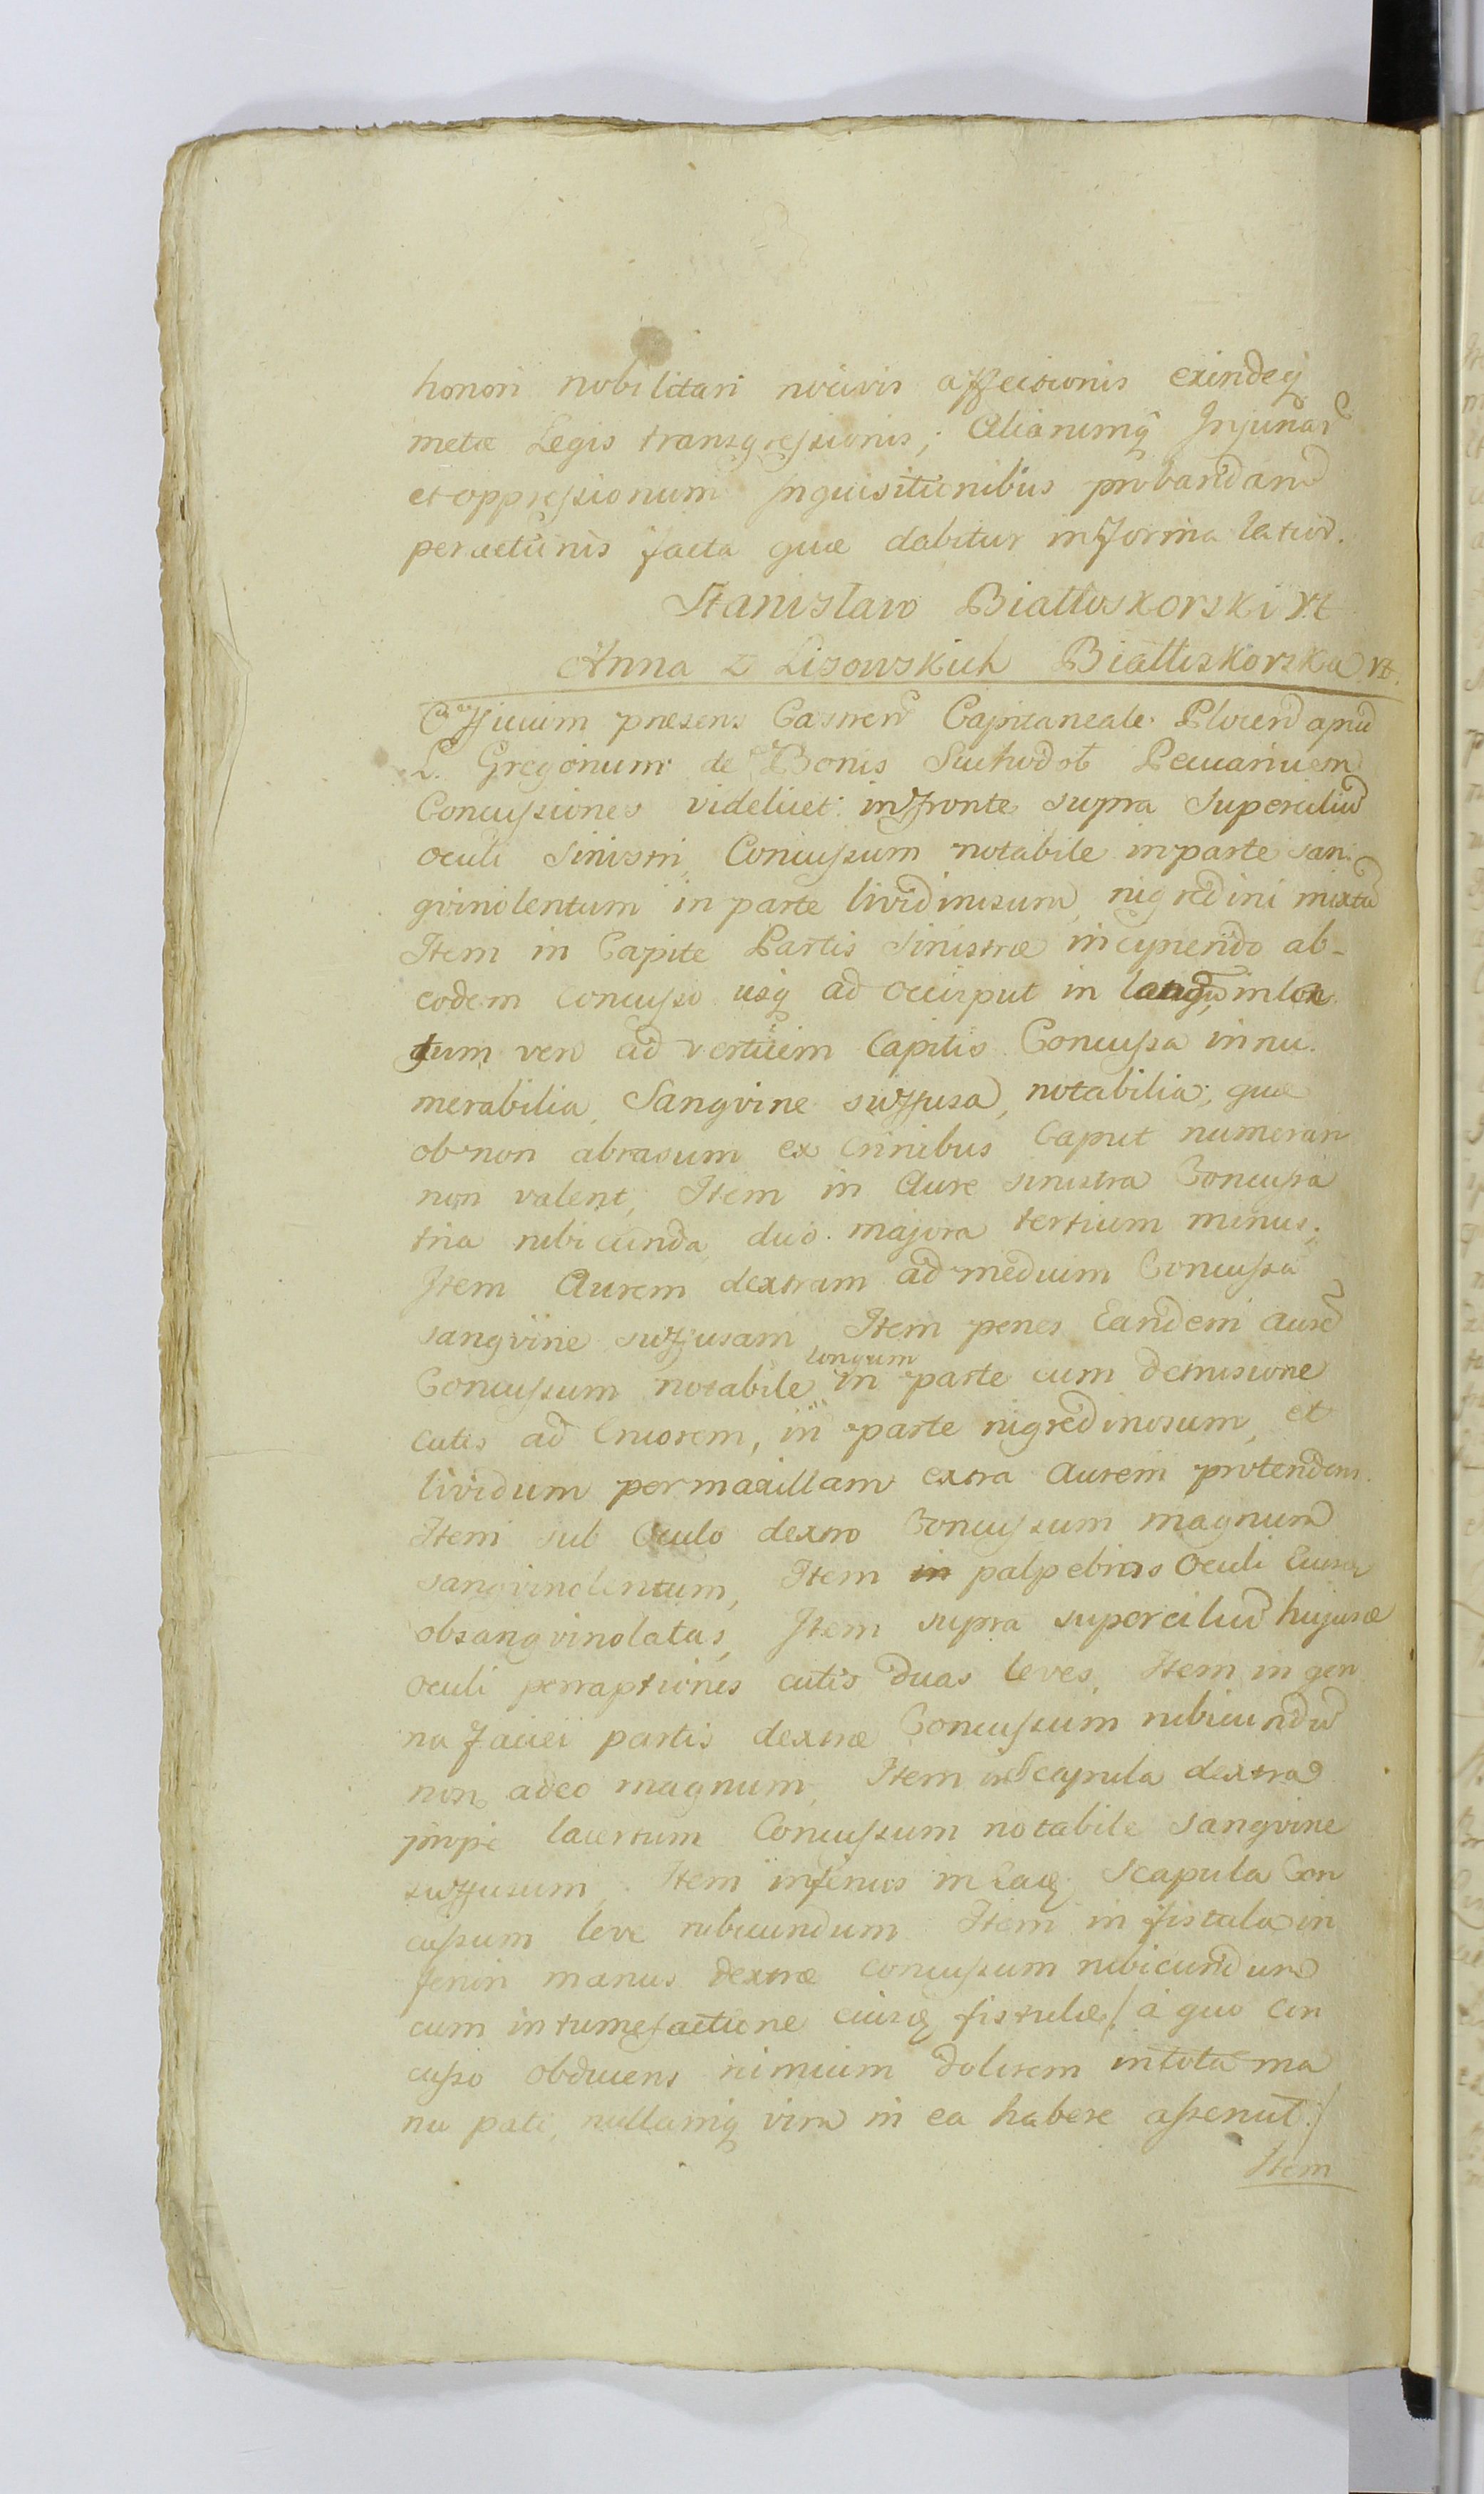 honori nobilitari nocivis affectionis exindeq
metæ Legis transgressionis; Aliarumq Injuriar
et oppressionum inquisitionibus probandam
peractionis facta quæ dabitur in forma latior.
Stanisław Białłoskorski
Anna z Lisowskich Białłoskorska
Officium præsens Castren Capitaneale Plocen apud
L. Gregorium de Bonis Suchodoł Pecuariuem
Concussiones videlicet: in fronte supra Superciliu
oculi sinistri, Concussum notabile in parte san
gvinolentum in parte lividinosum, nigredini mixtu
Item in Capite Partis sinistræ incipiendo ab
eodem concusso usq ad occiput in longu, in lon
gum vero ad verticem Capitis Concussa innu
merabilia, Sangvine suffusa, notabilia; quæ
ob non abrasum ex Crinibus Caput numerari
non valent, Item in Aure sinistra Concussa
tria rubicunda, duo majora tertium minus;
Item Aurem dextram ad medium Concussa
sangvine suffusam, Item penes Eandem aure
longum
Concussum notabile in parte cum detrusione
cutis ad Cruorem, in parte nigredinosum, et
lividum per maxillam extra Aurem protendens.
Item sub Oculo dextro Concussum magnum
sangvinolentum, Item in palpebras Oculi
obsangvinolatas, Item supra superciliu hujusce
oculi perraptiones cutis duas leves, Item in gen
na faciei partis dextræ Concussum rubicundu
non adeo magnum, Item in Scapula dextra
prope lacertum Concussum notabile sangvine
suffusum, Item inferius in Eadq Scapula Con
cussum leve rubicundum Item in fistula in
feriori manus dextræ concussum rubicundum
cum intumefactione eiusq fistulæ/ a quo con
cusso obducens nimium dolorem in tota ma
nu pati, nullamq vim in ea habere asseruit:/
Item